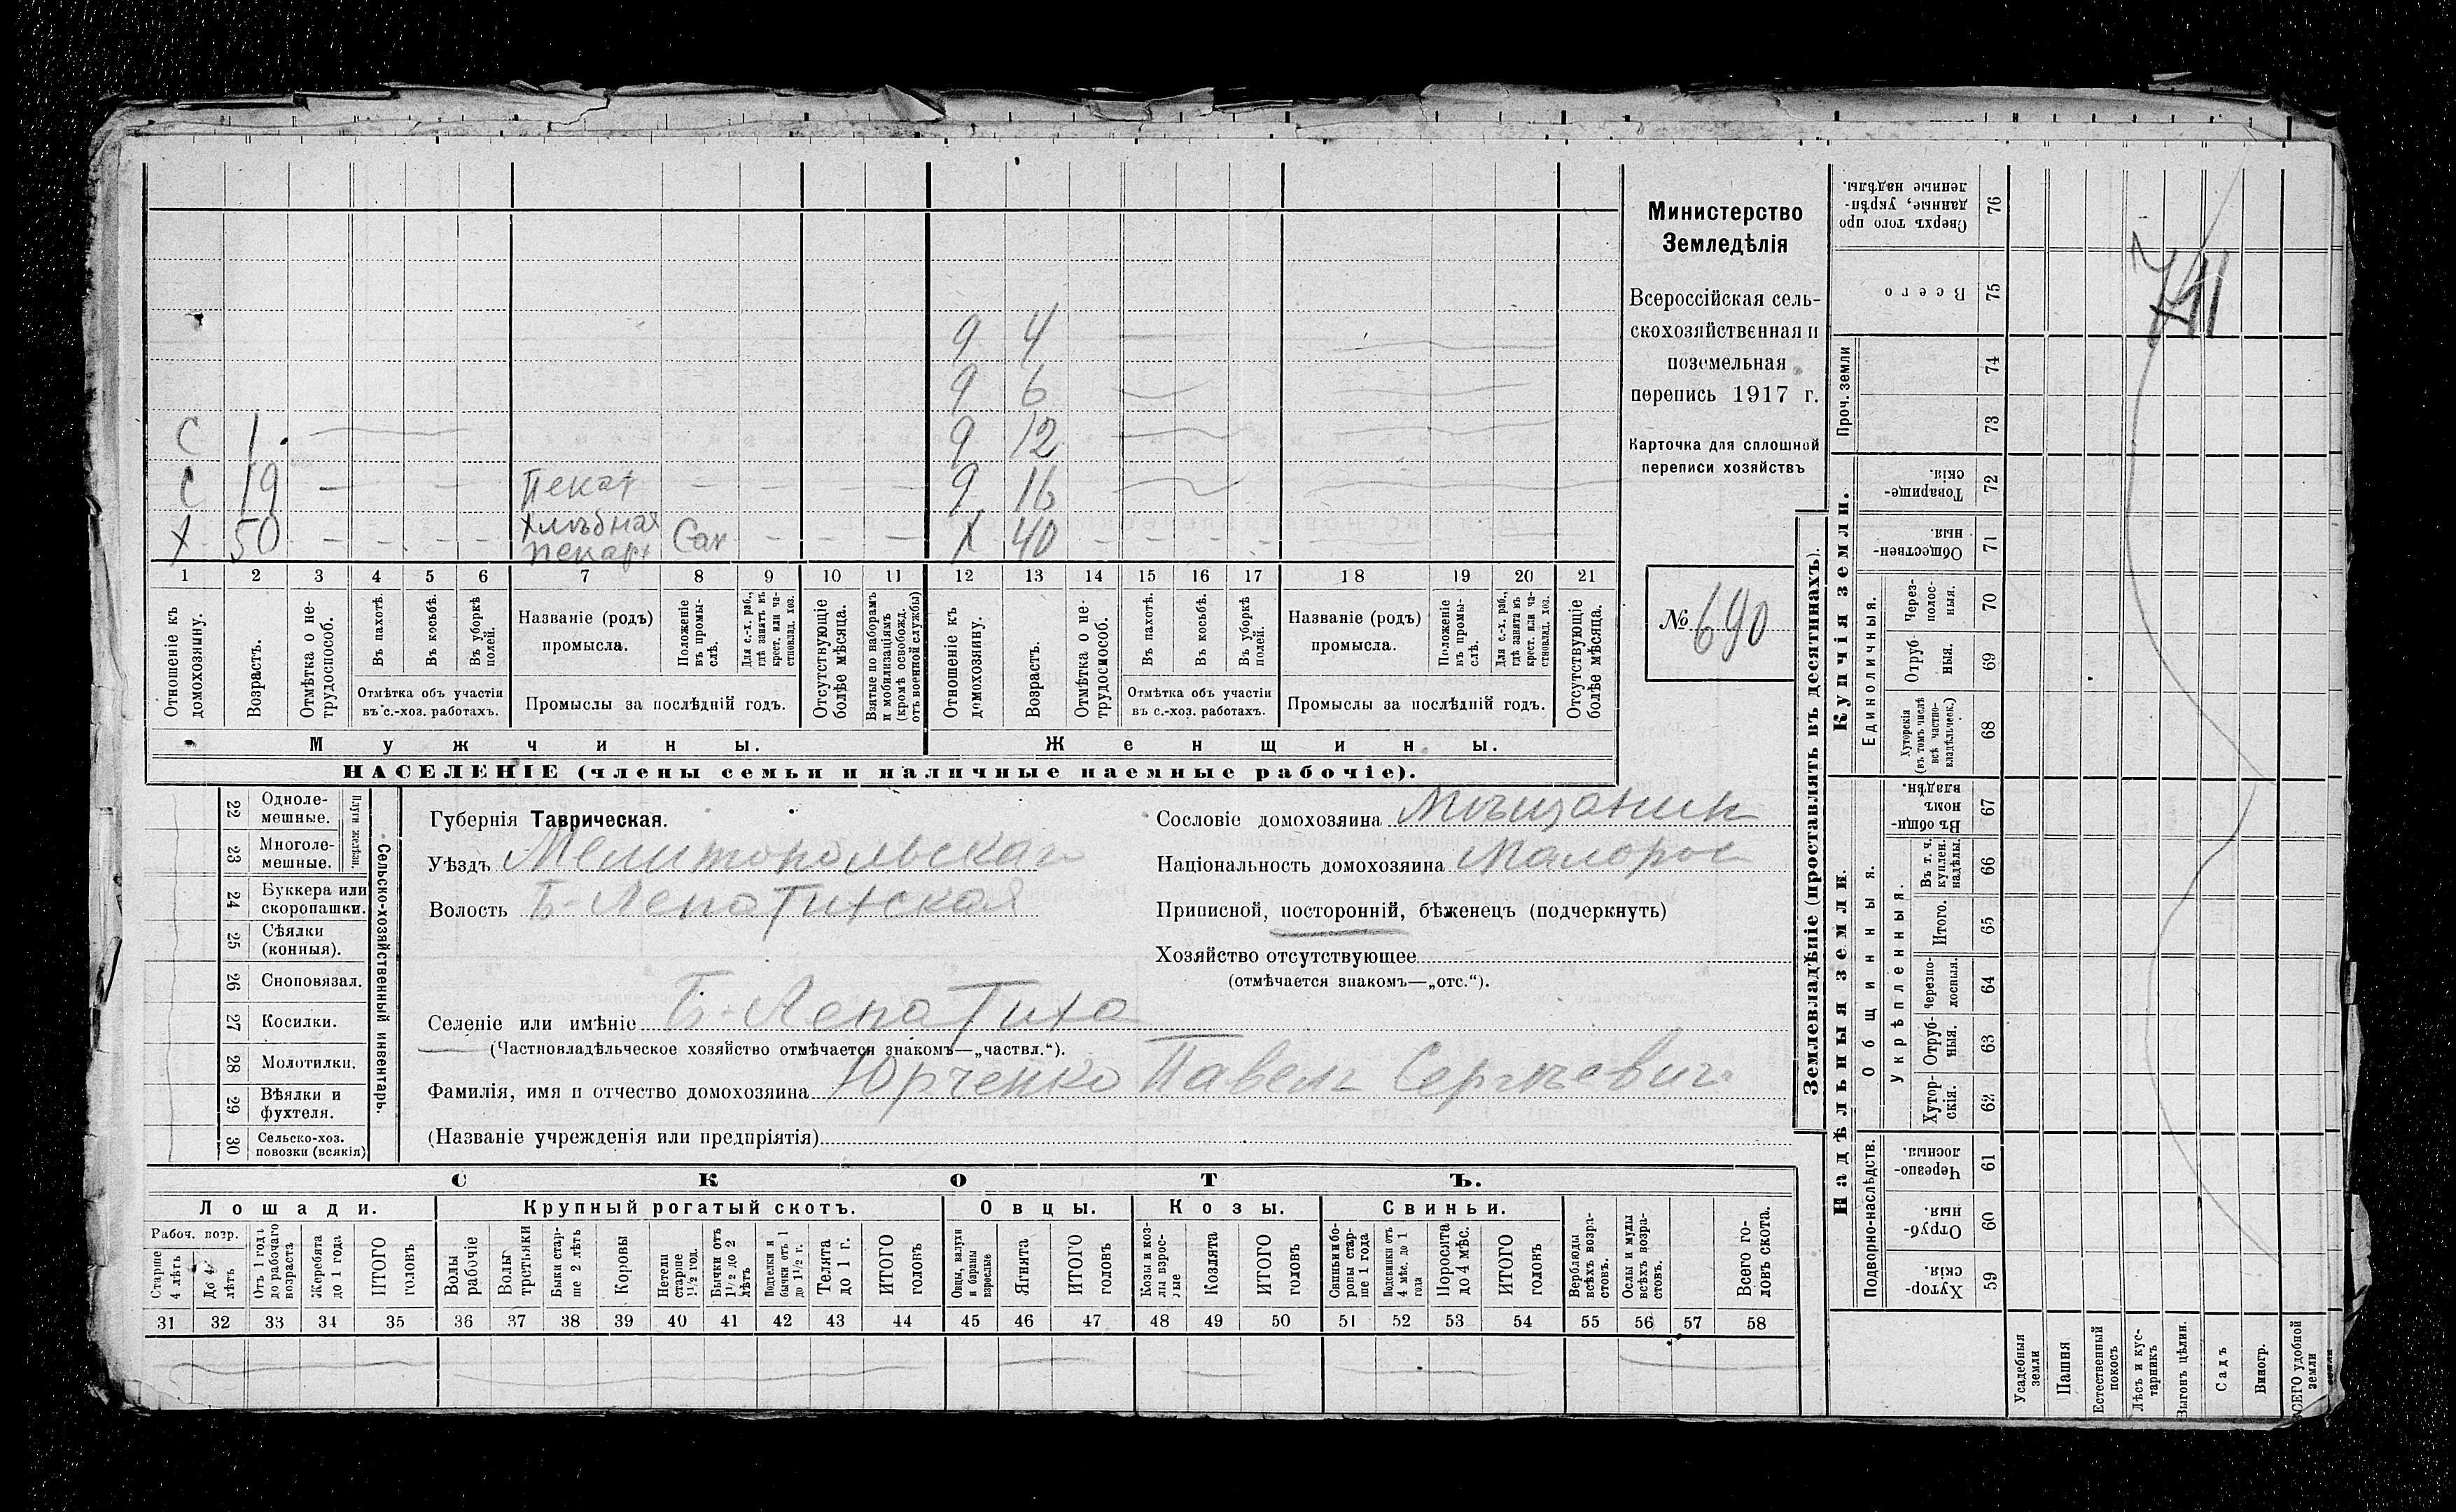 С 1. 
С 19 — Пекар — — — — 
Х 50 — — — — Хлѣбная пекар Сам — — — 
9 4
9 6
9 12
9 16
Х 40 — — — — — —
1 2 3 4 5 6 7 8 9 10 11 12 13 14 15 16 17 18 19 20 21
Отношеніе къ домохозяину.
Возрастъ.
Отмѣтка о не-трудоспособ.
Въ пахотѣ.
Въ косьбѣ.
Въ уборкѣ полей.
Отмѣтка объ участіи въ с.-хоз. работахъ.
Названіе (родъ) промысла.
Положеніе въ промы-слѣ.
Для с.-х. раб., гдѣ занятъ въ крест. или ча-стновлад. хоз.
Промыслы за послѣдній годъ.
Отсутствующіе болѣе мѣсяца.
Взятые по наборамъ и мобилизаціямъ (кромѣ освобожд. отъ военной службы)
Отношеніе къ домохозяину.
Возрастъ.
Отмѣтка о не-трудоспособ.
Въ пахотѣ.
Въ косьбѣ.
Въ уборкѣ полей.
Отмѣтка объ участіи въ с.-хоз. работахъ.
Названіе (родъ) промысла.
Положеніе въ промы-слѣ.
Для с.-х. раб., гдѣ занята въ крест. или ча-стновлад. хоз.
Промыслы за послѣдній годъ.
Отсутствующіе болѣе мѣсяца.
Мужчины.
Женщины.
НАСЕЛЕНІЕ (члены семьи и наличные наемные рабочіе).
Министерство
Земледѣлія
Всероссійская сель-
скохозяйственная и
поземельная
перепись 1917 г.
Карточка для сплошной
переписи хозяйствъ
№ 690
22 Одноле-мешные.
23 Многоле-мешные.
Плуги желѣзн.
24 Буккера или скоропашки.
25 Сѣялки (конныя).
26 Сноповязал.
27 Косилки.
28 Молотилки.
29 Вѣялки и фухтеля.
30 Сельско-хоз. повозки (всякія)
Сельско-хозяйственный инвентарь.
Губернія Таврическая.
Уѣздъ Мелитопольская
Волость Б-Лепатихская
Селеніе или имѣніе Б-Лепатиха
(Частновладѣльческое хозяйство отмѣчается знакомъ—„частвл.“).
Фамилія, имя и отчество домохозяина Юрченко Павелъ Сергѣевич
(Названіе учрежденія или предпріятія)
Сословіе домохозяина Мѣщанин
Національность домохозяина Малорос
Приписной, посторонній, бѣженецъ (подчеркнуть)
Хозяйство отсутствующее
(отмѣчается знакомъ—„отс.“).
СКОТЪ.
Лошади.
Крупный рогатый скотъ.
Овцы.
Козы.
Свиньи.
Рабоч. возр.
Старше 4 лѣтъ
До 4 лѣтъ
Отъ 1 годъ до рабочаго возраста
Жеребята до 1 года
ИТОГО головъ
Волы рабочіе
Волы третьяки
Быки стар-ше 2 лѣтъ
Коровы
Нетели старше 1½ год.
Бычки отъ 1½ до 2 лѣтъ
Подтелки и бычки отъ 1 до 1½ г.
Телята до 1 г.
ИТОГО головъ
Овцы, валухи и бараны взрослые
Ягнята
ИТОГО головъ
Козы и коз-лы взрос-лые
Козлята
ИТОГО головъ
Свиньи и бо-ровы стар-ше 1 года
Подсвинки отъ 4 мѣс. до 1 года
Поросята до 4 мѣс.
ИТОГО головъ
Верблюды всѣхъ возра-стовъ.
Ослы и мулы всѣхъ возра-стовъ.
Всего го-ловъ скота.
31 32 33 34 35 36 37 38 39 40 41 42 43 44 45 46 47 48 49 50 51 52 53 54 55 56 57 58
Землевладѣніе (проставлять въ десятинахъ).
Надѣльныя земли.
Купчія земли.
Проч. земли
Подворно-наслѣдств.
Общинныя.
Укрѣпленныя.
Единоличныя.
Сверхъ того про данные, укрѣп-ленные надѣлы. 76
Всего 75
74
73
Товарище-скія. 72
Обществен-ныя 71
Через-полос-ныя. 70
Отруб ныя. 69
Хуторскія (въ томъ числѣ всѣ частно-владѣльческ.) 68
Въ общи-номъ владѣн. 67
Въ т. ч. куплен. надѣлы. 66
Итого. 65
Черезпо-лосныя. 64
Отруб-ныя. 63
Хутор-скія. 62
Черезпо-лосныя 61
Отруб-ныя 60
Хутор-скія. 59
Усадебныя земли
Пашня
Естественный покосъ
Лѣсъ и кус-тарникъ
Выгонъ цѣлин.
Садъ
Виногр.
ВСЕГО удобной земли
741